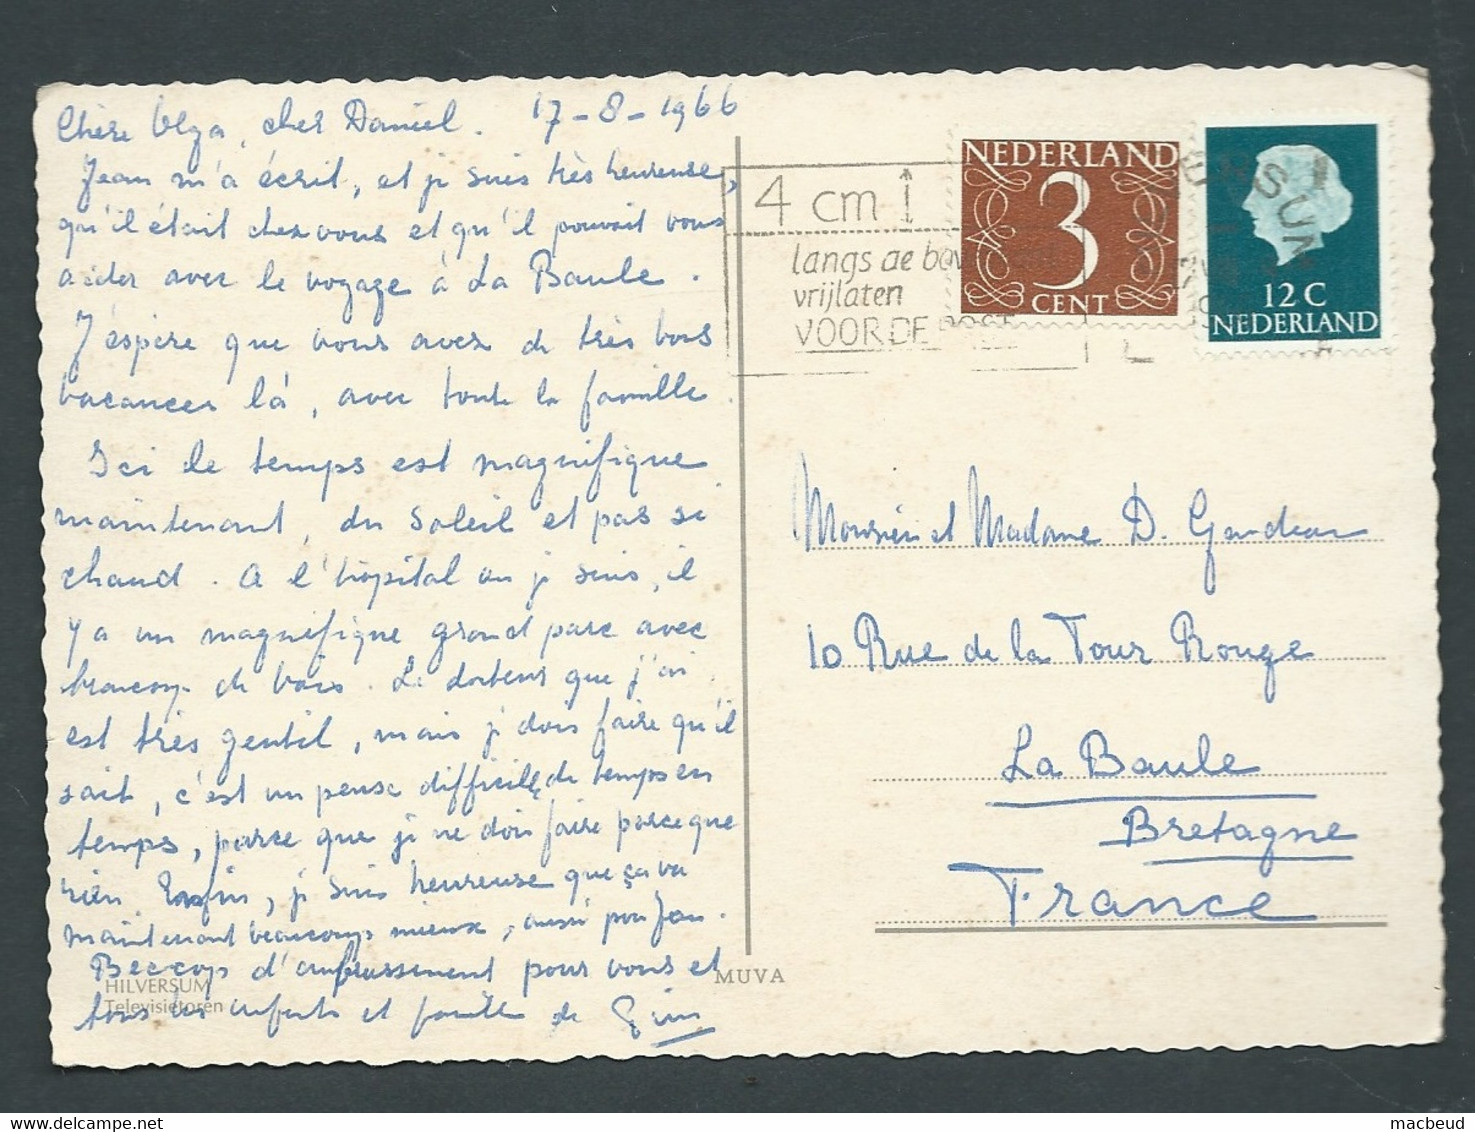 Chère Olga, cher Daniel. 17-8-1966
Jean m'a écrit, et je suis très heureuse,
qu'il était chez vous et qu'il pouvait vous
aider avec le voyage à La Baule.
J'espère que vous avez de très bons
vacances là, avec toute la famille.
Ici le temps est magnifique
maintenant, du soleil et pas si
chaud. A l'hôpital ou je suis, il
y a un magnifique grand parc avec
beaucoup de bois. Le docteur que j'ai
est très gentil, mais je dois faire qu'il
sait, c'est un peux difficile de temps en
temps, parce que je ne dois faire parceque
rien. Enfin, je suis heureuse que ça va
maintenant beaucoup mieux, aussi pour Jean.
Beccop d'embrassement pour vous et
tous les enfants et famille de
HILVERSUM
Televisietoren
MUVA
4 cm
langs de bov
vrijlaten
VOOR DE POST
NEDERLAND
3
CENT
12 C
NEDERLAND
Monsieur et Madame D.
10 Rue de la Tour Rouge
La Baule
Bretagne
France
macbeud